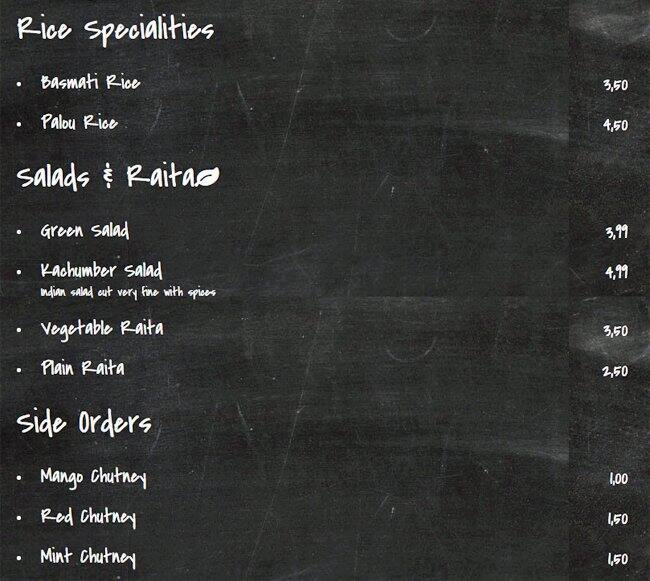 Rice Specialities
• Basmati Rice 3,50
• Palou Rice 4,50
Salads & Raita
• Green Salad 3,99
• Kachumber Salad 4,99
Indian salad cut very fine with spices
• Vegetable Raita 3,50
• Plain Raita 2,50
Side Orders
• Mango Chutney 1,00
• Red Chutney 1,50
• Mint Chutney 1,50